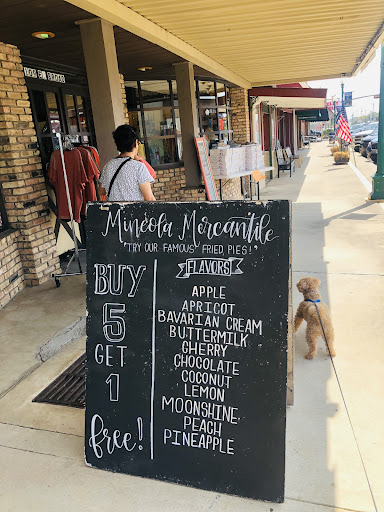 101 E. BROAD
Mineola Mercantile
"TRY OUR FAMOUS FRIED PIES!"
BUY
5
GET
1
free!
FLAVORS
APPLE
APRICOT
BAVARIAN CREAM
BUTTERMILK
CHERRY
CHOCOLATE
COCONUT
LEMON
MOONSHINE
PEACH
PINEAPPLE